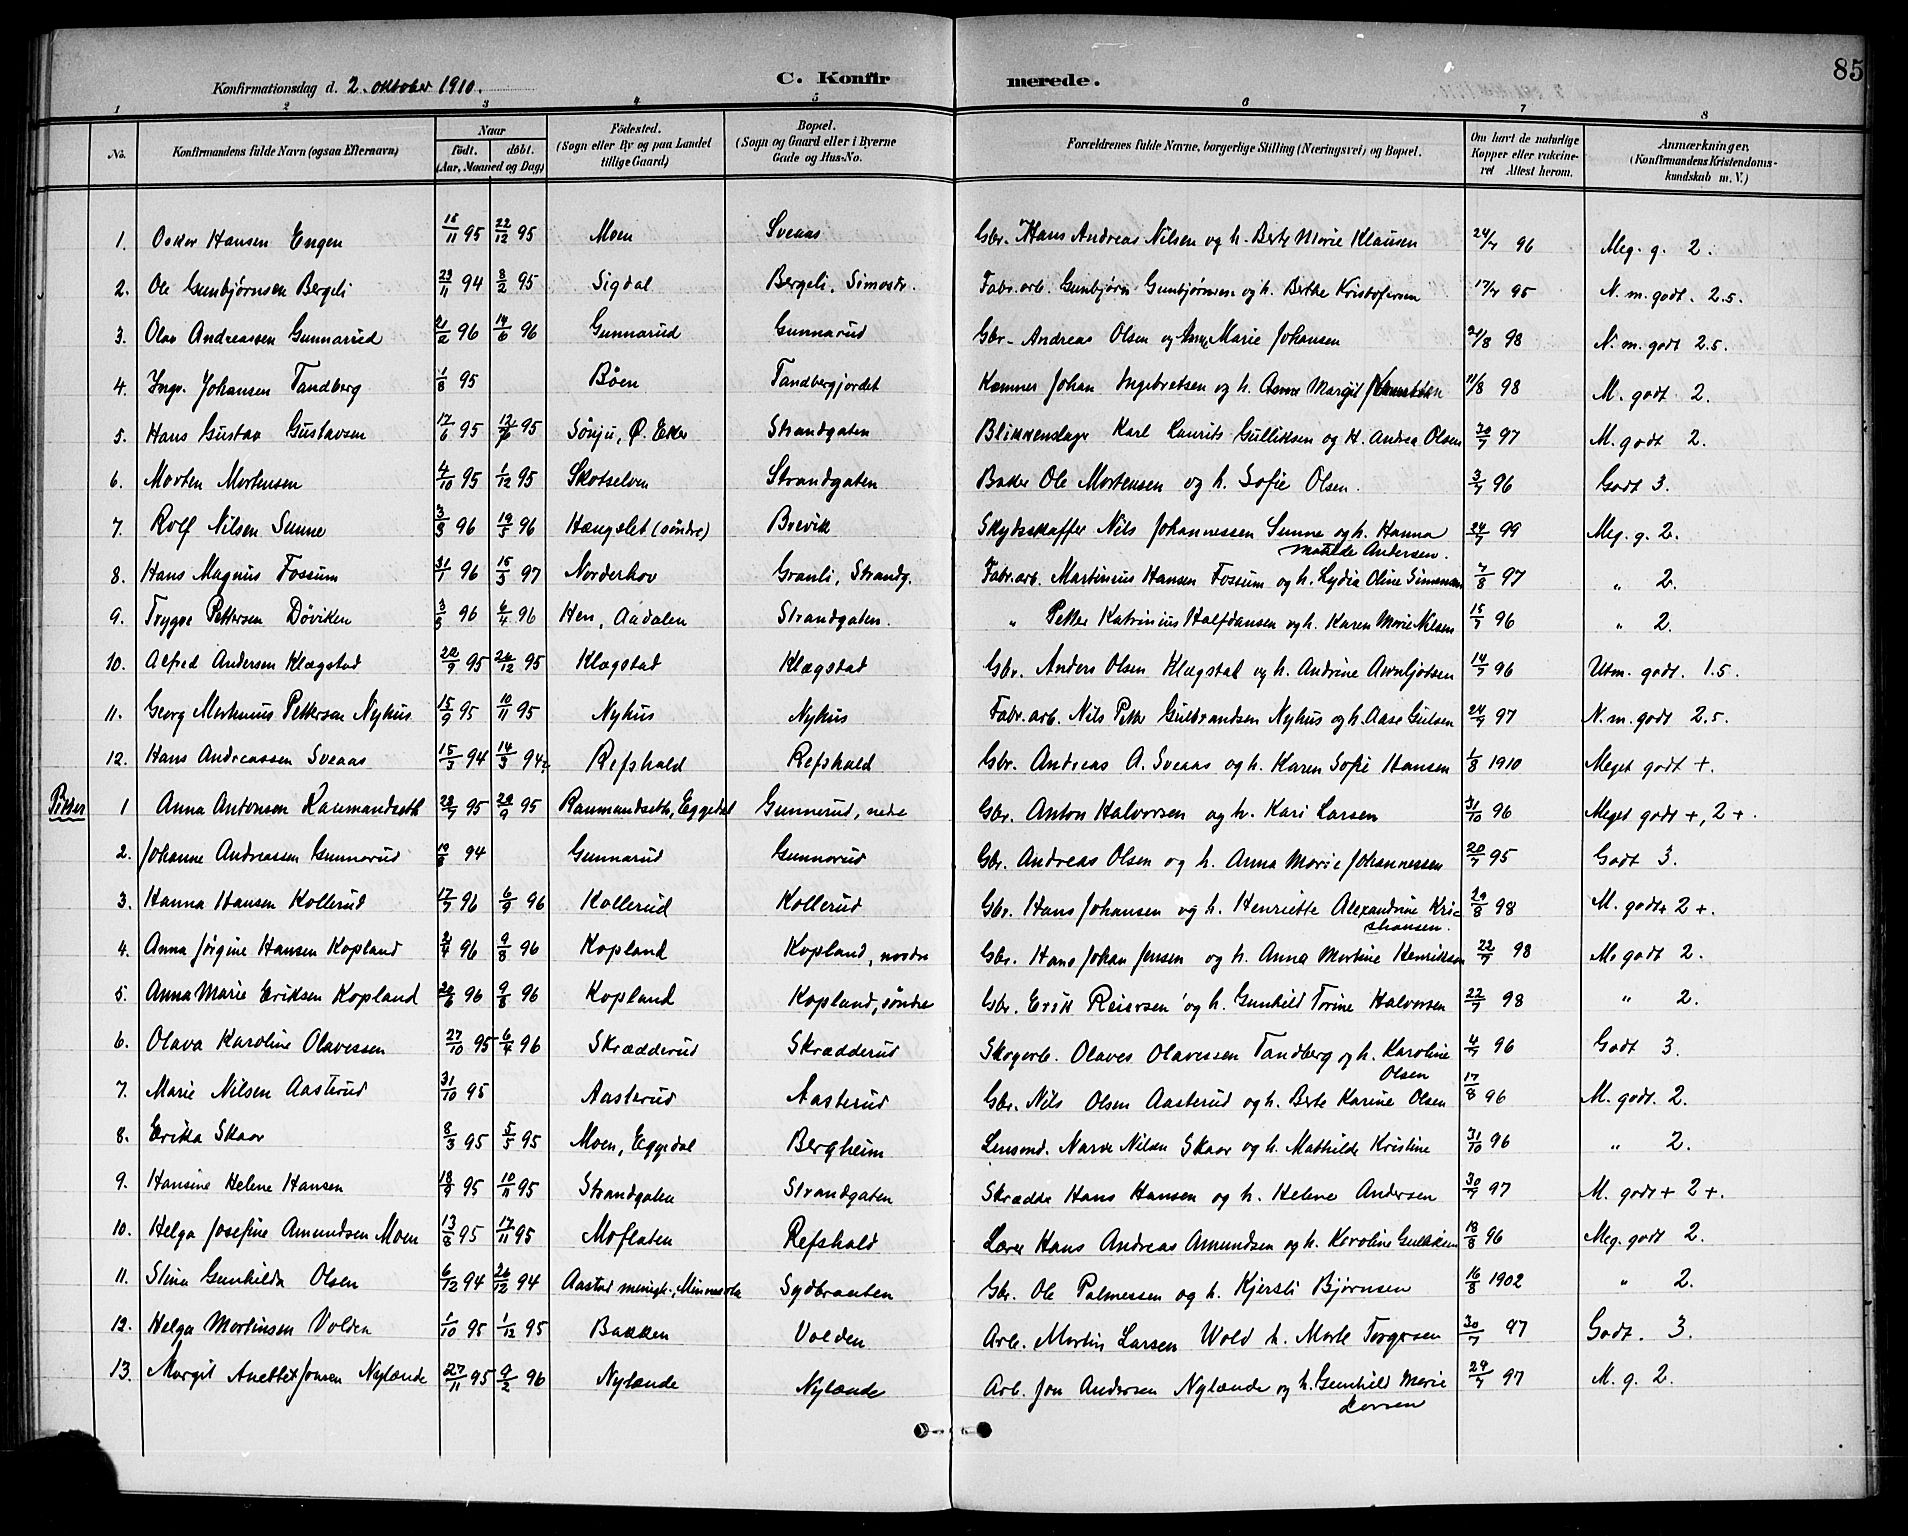 85
Konfirmationsdag d. 2. oktober 1910.
C. Konfirmerede.
1 2 3 4 5 6 7 8
No. Konfirmandens fulde Navn (ogsaa Efternavn) Naar födt. döbt. (Aar, Maaned og Dag) Födested. (Sogn eller By og paa Landet tillige Gaard) Bopæl. (Sogn og Gaard eller i Byerne Gade og Hus-No. Forældrenes fulde Navne, borgerlige Stilling (Næringsvei) og Bopæl. Om havt de naturlige Kopper eller vakcineret Attest herom. Anmærkninger. (Konfirmandens Kristendomskundskab m. V.)
1. Oskar Hansen Engen 15/11 95 22/12 95 Moen Sveaas Gbr. Hans Andreas Nilsen og h. Berte Marie Klausen 24/7 96 Meg. g. 2.
2. Ole Gunbjørnsen Bergeli 23/11 94 8/2 95 Sigdal Bergeli, Simostr. Fabr.arb. Gunbjørn Gunbjørnsen og h. Berthe Kristofersen 17/7 95 N. m. godt. 2.5.
3. Olav Andreassen Gunnarud 21/2 96 14/6 96 Gunnarud Gunnarud Gbr. Andreas Olsen og Anne Marie Johansen 21/8 98 N. m. godt 2.5.
4. Ingv. Johansen Tandberg 1/8 95 Bøen Tandbergjordet Johan Ingebretsen og h. Anne Margit 11/8 98 M. godt 2.
5. Hans Gustav Gustavsen 17/6 95 95 Sønju, Ø. Eker Strandgaten Blikkenslager Karl Laurits Gulliksen og h. Andrea Olsen 30/7 97 M. godt 2.
6. Morten Mortensen 4/10 95 1/12 95 Skotselven Strandgaten Baker Ole Mortensen og h. Sofie Olsen. 3/7 96 Godt 3.
7. Rolf Nilsen Sunne 3/3 96 19/5 96 Hængslet (søndre) Brevik Skydsskaffer Nils Johannessen Sunne og h. Hanna Matilde Andersen. 24/7 99 Meg. g. 2.
8. Hans Magnus Fossum 31/1 96 15/3 97 Norderhov Granli, Strandg. Fabr.arb. Martinius Hansen Fossum og h. Lydia Oline Simensen 7/8 97 " 2.
9. Trygve Pettersen Døviken 3/3 96 6/4 96 Hen, Aadalen Strandgaten. " Petter Katrinius Halfdansen og h. Karen Marie Nilsen 15/7 96 " 2.
10. Alfred Andersen Klægstad 22/9 95 26/12 95 Klægstad Klægstad Gbr. Anders Olsen Klægstad og h. Andrine Arnljotsen 14/7 96 Utm. godt. 1.5.
11. Georg Marthinius Pettersen Nyhus 15/9 95 10/11 95 Nyhus Nyhus Fabr.arb. Nils Petter Gulbrandsen Nyhus og h. Aase Gulsen 24/7 97 N. m. godt 2.5.
12. Hans Andreassen Sveaas 15/3 94 14/3 94? Refshald Refshald Gbr. Andreas A. Sveaas og h. Karen Sofie Hansen 1/8 1910 Meget godt +.
Piker 1 Anna Antonsen Raumandseth 22/7 95 29/9 95 Raumandseth, Eggedal Gunnerud, nedre Gbr. Anton Halvorsen og h. Kari Larsen 31/10 96 Meget godt +, 2 +.
2. Johanne Andreassen Gunnarud 19/8 94 Gunnarud Gunnarud Gbr. Andreas Olsen og h. Anna Marie Johannessen 20/7 95 Godt 3.
3. Hanna Hansen Kollerud 17/7 96 6/9 96 Kollerud Kollerud Gbr. Hans Johansen og h. Henriette Alexandrine Kristiansen. 20/8 98 M. godt + 2 +.
4. Anna Jørgine Hansen Kopland 2/4 96 9/8 96 Kopland Kopland, nordre Gbr. Hans Johan Jensen og h. Anna Mortine Henriksen 22/7 98 M. godt 2.
5. Anna Marie Eriksen Kopland 20/6 96 9/8 96 Kopland Kopland, søndre Gbr. Erik Reiersen og h. Gunhild Torine Halvorsen 22/7 98 " 2.
6. Olava Karoline Olavessen 27/10 95 6/4 96 Skrædderud Skrædderud Skogarb. Olaves Olavessen Tandberg og h. Karoline Olsen 4/7 96 Godt 3.
7. Marie Nilsen Aasterud 31/10 95 Aasterud Aasterud Gbr. Nils Olsen Aasterud og h. Berte Karine Olsen 17/8 96 M. godt. 2.
8. Erika Skaar 8/3 95 5/5 95 Moen, Eggedal Bergheim Lensmd. Narve Nilsen Skaar og h. Mathilde Kristine 31/10 96 " 2.
9. Hansine Helene Hansen 18/9 95 10/11 95 Strandgaten Strandgaten Skrædder Hans Hansen og h. Helene Andersen 30/7 97 M. godt + 2 +.
10. Helga Josefine Amundsen Moen 13/8 95 17/11 95 Moflaten Refshald Lærer Hans Andreas Amundsen og h. Karoline Gulliksen 18/8 96 Meg. godt 2.
11. Stina Gunhilda Olsen 6/12 94 26/12 94 Aastad menigh., Minnesota Sydbraaten Gbr. Ole Palmessen og h. Kjersti Bjørnsen 16/8 1902 " 2.
12. Helga Martinsen Volden 5/10 95 1/12 95 Bakken Volden Arb. Martin Larsen Wold h. Marte Torgersen 30/7 97 Godt. 3.
13. Margit Anette Jonsen Nylænde 27/11 95 9/2 96 Nylænde Nylænde Arb. Jon Andersen Nylænde og h. Gunhild Marie Larsen 29/7 97 M. g. 2.